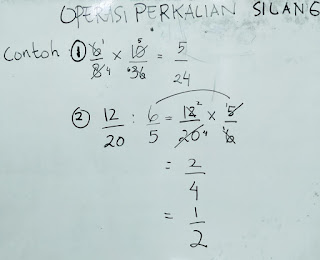 OPERASI PERKALIAN SILANG
Contoh : ① 6/8 × 10/36 = 5/24
② 12/20 : 6/5 = 12/20 × 5/6
= 2/4
= 1/2